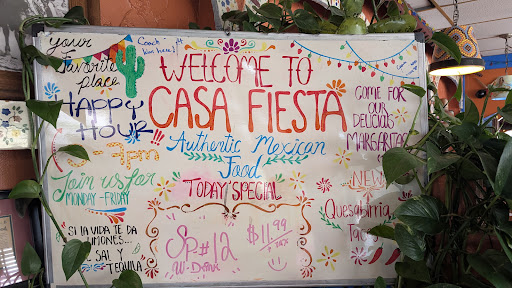 your
favorite
place
HAPPY
HOUR
3-7pm
Join us for
MONDAY-FRIDAY
SI LA VIDA TE DA
LIMONES...
SAL Y
TEQUILA
Coach
WELCOME TO
CASA FIESTA
Authentic Mexican
Food
TODAY SPECIAL
SP#12
W-Drink
$11.99
TAX
COME FOR
OUR
DELICIOUS
MARGARITAS
NEW
Quesabirria
Tacos